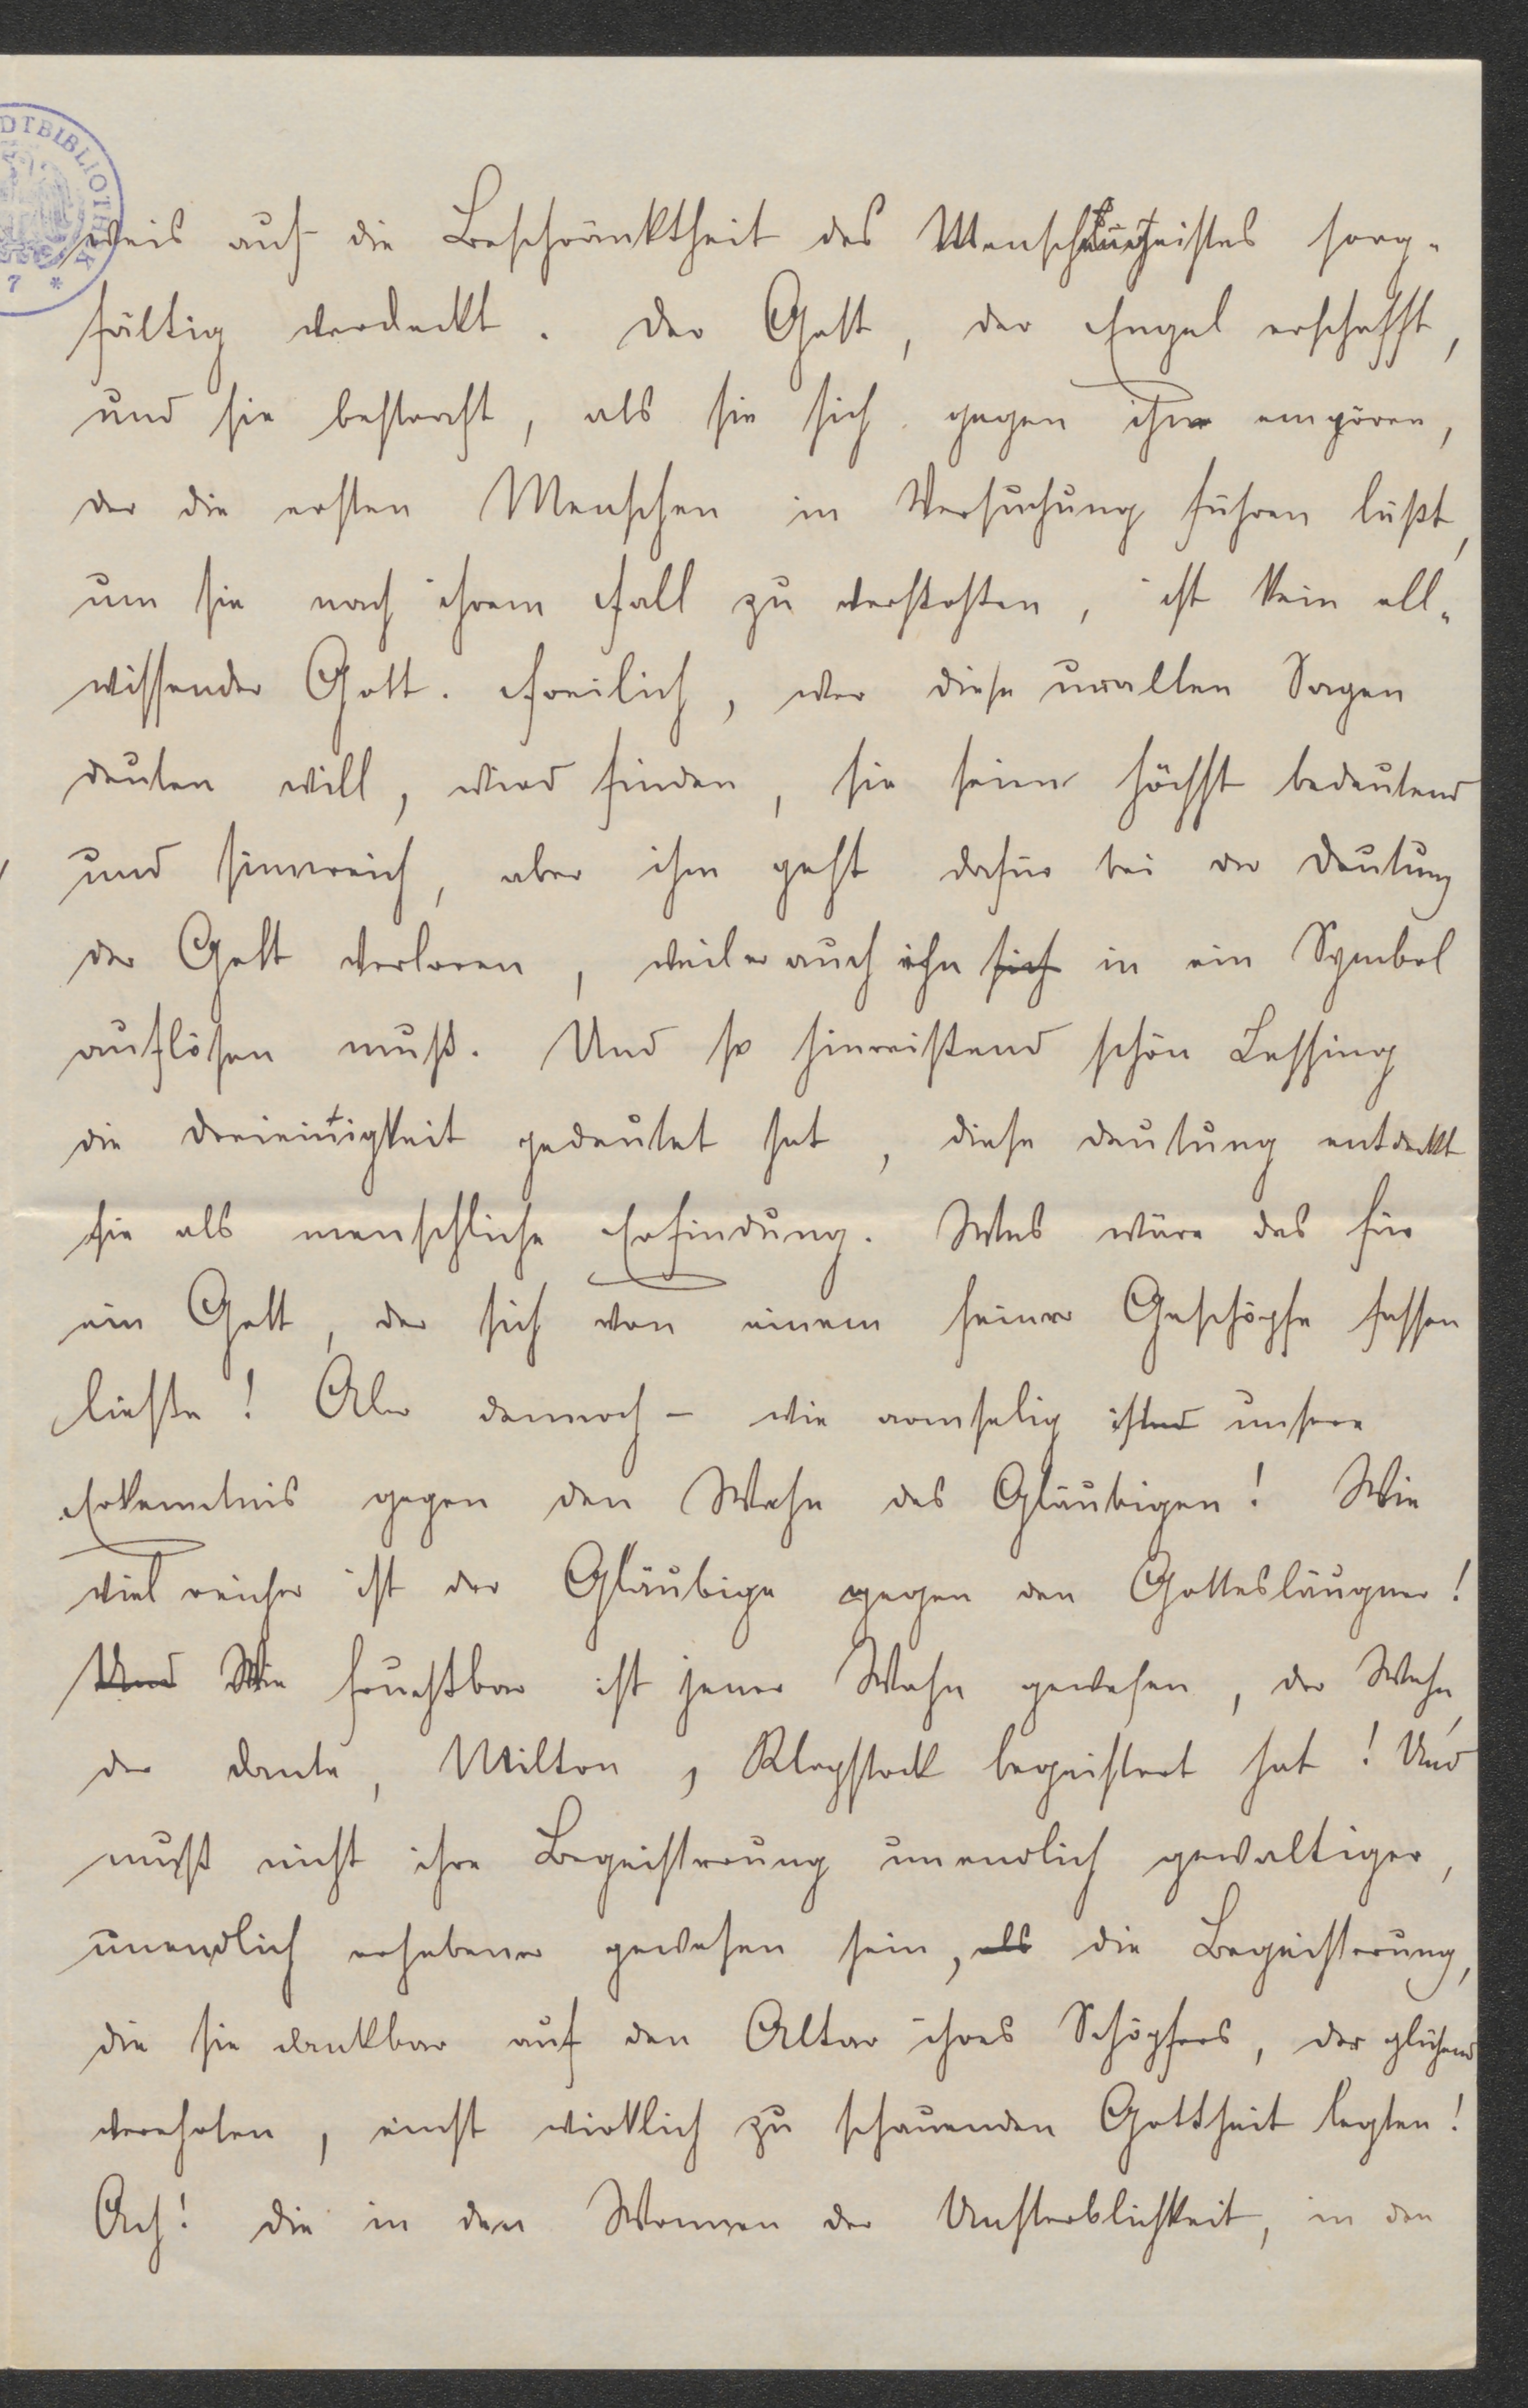 weis auf die Beschränktheit des Menschengeistes sorg-
fältig verdeckt. Der Gott, der Engel erschafft,
und sie bestraft, als sie sich gegen ihn empören,
der die ersten Menschen in Versuchung führen läßt,
um sie nach ihrem Fall zu verstoßen, ist kein all-
wissender Gott. Freilich, wer diese uralten Sagen
deuten will, wird finden, sie seien höchst bedeutend
und sinnreich, aber ihm geht dafür bei der Deutung
der Gott verloren, weil er auch ihn sich in ein Symbol
auflösen muß. Und so hinreißend schön Lessing
die Dreieinigkeit gedeutet hat, diese Deutung entdeckt
sie als menschliche Erfindung. Was wäre das für
ein Gott, der sich von einem seiner Geschöpfe fassen
ließe! Aber dennoch – wie armselig ist unsere
Erkenntnis gegen den Wahn des Gläubigen! Wie
viel reicher ist der Gläubige gegen den Gottesläugner!
Und Wie fruchtbar ist jener Wahn gewesen, der Wahn,
der Dante, Milton, Klopstock begeistert hat! Und
muß nicht ihre Begeisterung unendlich gewaltiger,
unendlich erhabener gewesen sein, als die Begeisterung,
die sie dankbar auf den Altar ihres Schöpfers, der glühend
verehrten, einst wirklich zu schauenden Gottheit legten!
Ach! die in den Wonnen der Unsterblichkeit, in den